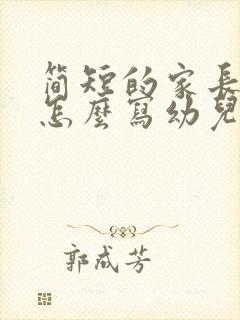 简短的家長
怎麼寫幼兒
郭成芳